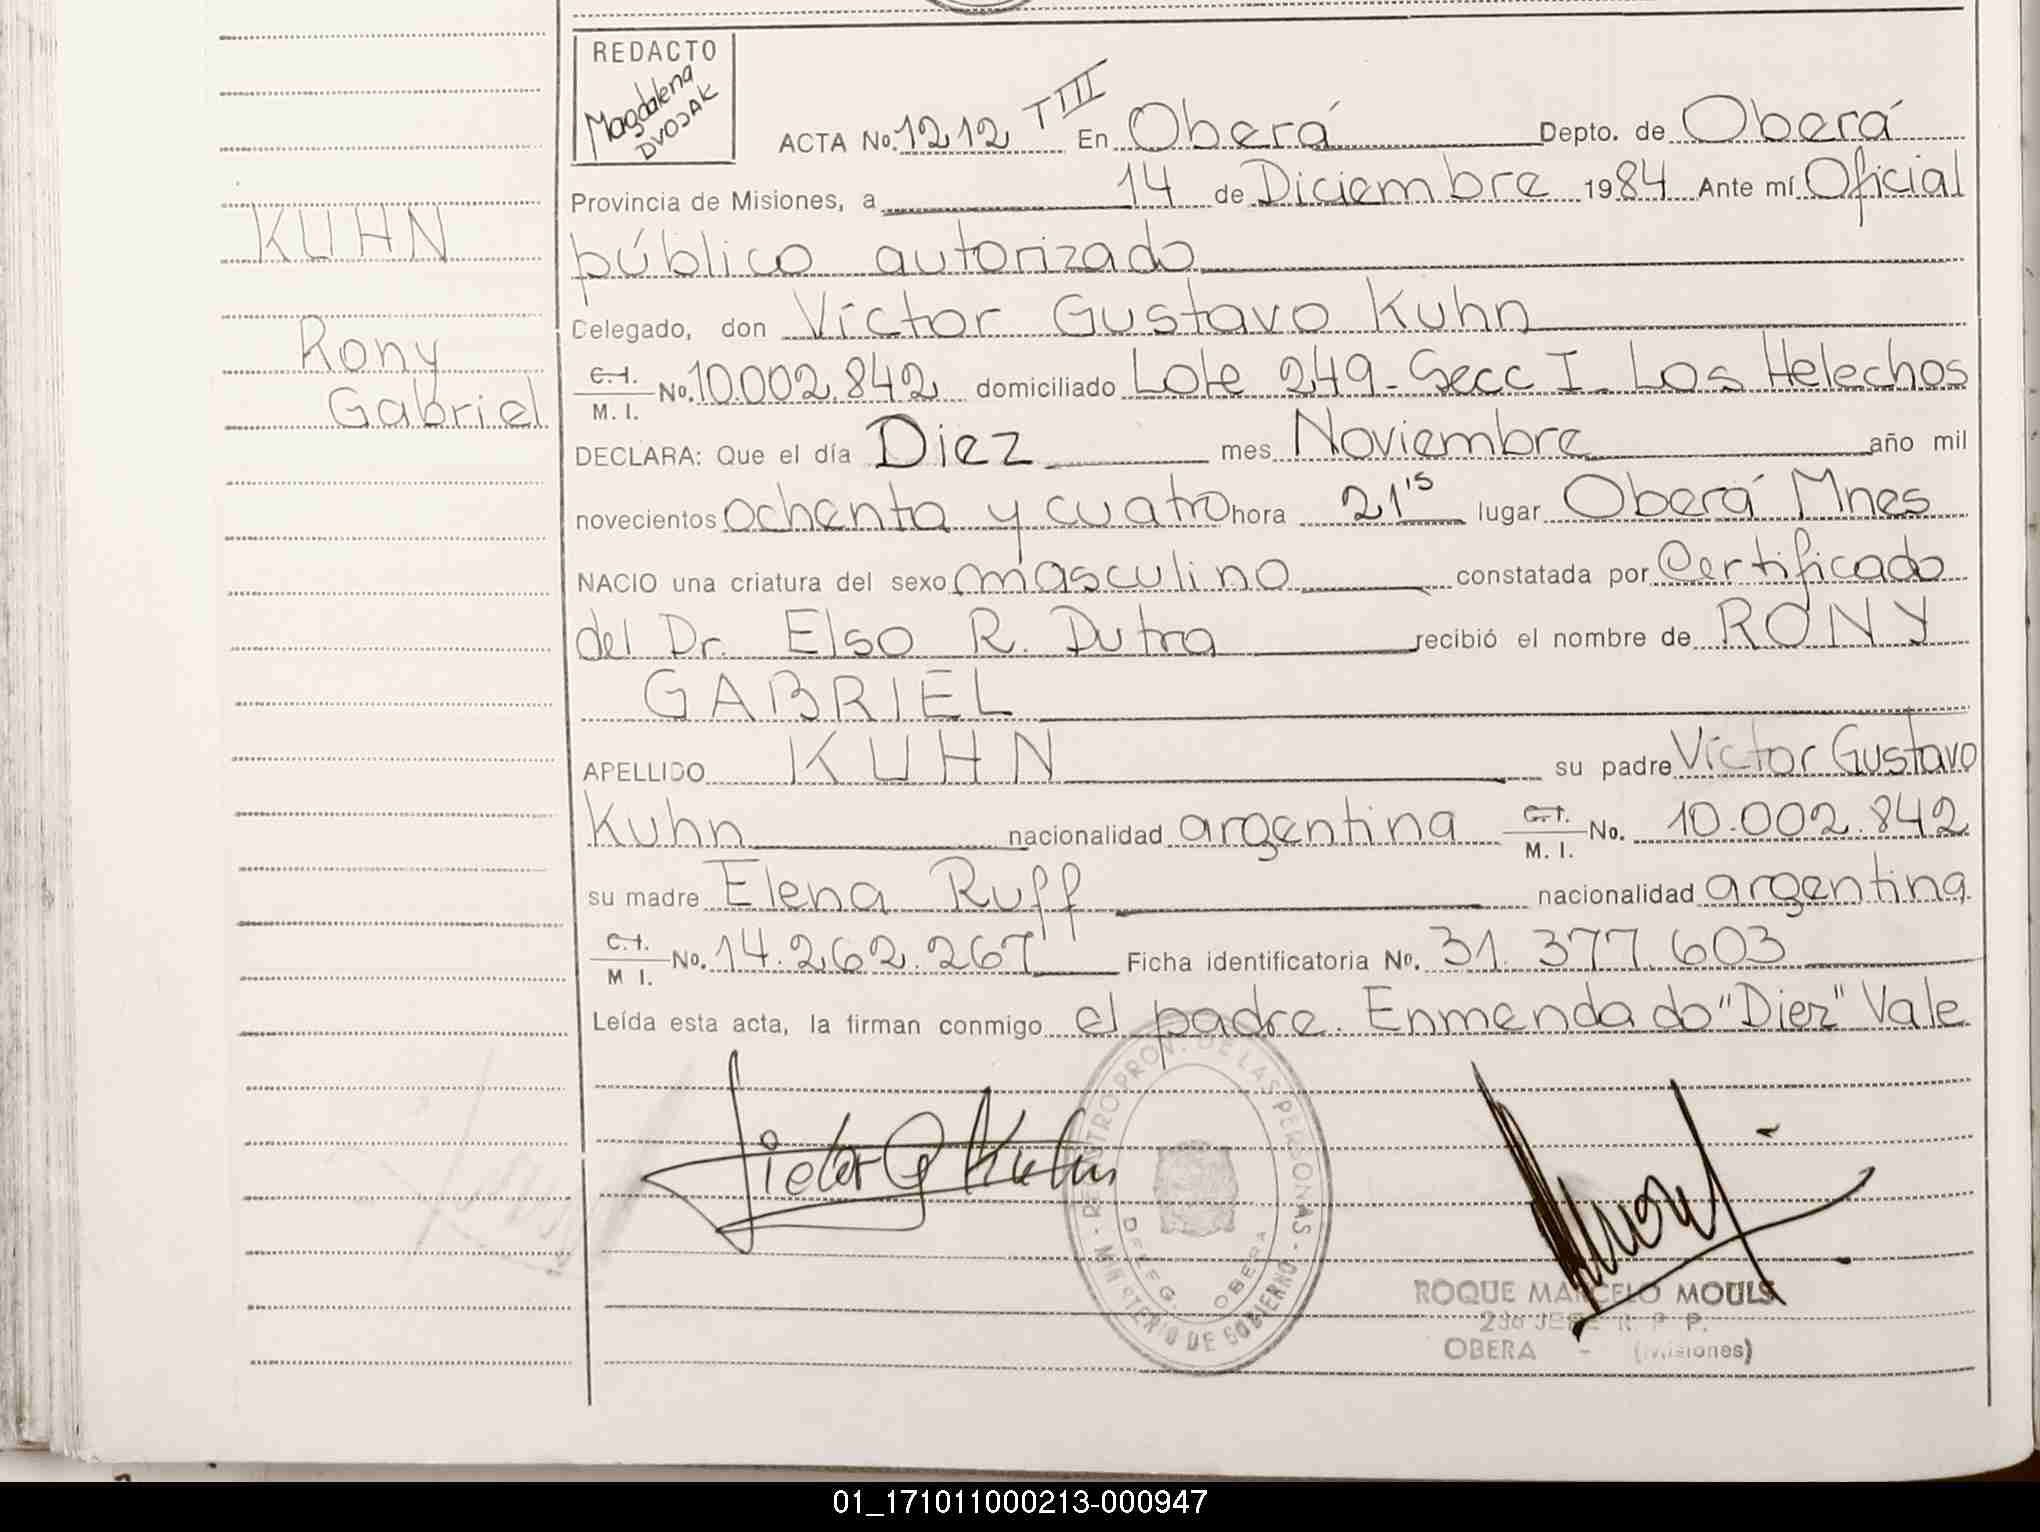 REDACTO
Magdalena
DVOJAK
ACTA No. 1212 T III En Oberá Depto. de Oberá
Provincia de Misiones, a 14 de Diciembre 1984 Ante mí Oficial
público autorizado
KUHN
Celegado, don Víctor Gustavo Kuhn
Rony
Gabriel
C.I. M. I. No. 10.002.842 domiciliado Lote 249 - Secc I - Los Helechos
DECLARA: Que el día Diez mes Noviembre año mil
novecientos ochenta y cuatro hora 21'15 lugar Oberá Mnes
NACIO una criatura del sexo masculino constatada por Certificado
del Dr. Elso R. Dutra recibió el nombre de RONY
GABRIEL
APELLIDO KUHN su padre Víctor Gustavo
Kuhn nacionalidad argentina C.I. M. I. No. 10.002.842
su madre Elena Ruff nacionalidad argentina
C.I. M I. No. 14.262.267 Ficha identificatoria No. 31.377.603
Leída esta acta, la firman conmigo el padre. Enmendado "Diez" Vale
Victor G Kuhn
REGISTRO PROV. DE LAS PERSONAS - MINISTERIO DE GOBIERNO -
DELEG. OBERA
ROQUE MARCELO MOULS
2do JEFE R. P. P.
OBERA - (Misiones)
01_171011000213-000947